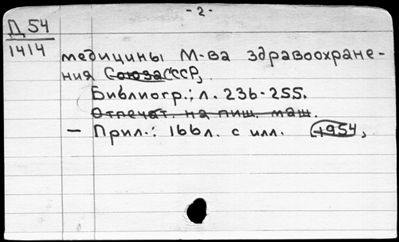 - 2 -
Д 54
1414
медицины М-ва здравоохране-
ния Союза СССР,
Библиогр.: л. 236-255.
Отпечат. на пиш. маш.
— Прил.: 166л. с илл. 1954,